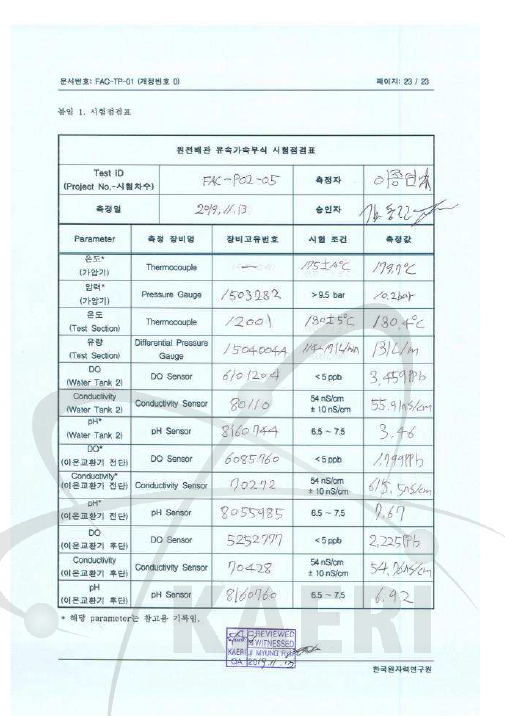 문서번호: FAC-TP-01 (개정번호 0) 페이지: 23 / 23
붙임 1. 시험점검표
원전배관 유속가속부식 시험점검표
Test ID (Project No.-시험차수) FAC-P02-05 측정자
측정일 2019. 11. 13 승인자
Parameter 측정 장비명 장비고유번호 시험 조건 측정값
온도* (가압기) Thermocouple — 175±4℃ 179.7℃
압력* (가압기) Pressure Gauge 1503282 > 9.5 bar 10.2bar
온도 (Test Section) Thermocouple 12001 130±5℃ 130.4℃
유량 (Test Section) Differential Pressure Gauge 1504004A 131L/m
DO (Water Tank 2) DO Sensor 6101204 < 5 ppb 3.459PPb
Conductivity (Water Tank 2) Conductivity Sensor 80110 54 nS/cm ± 10 nS/cm 55.91nS/cm
pH* (Water Tank 2) pH Sensor 8160744 6.5 ~ 7.5 3.46
DO* (이온교환기 전단) DO Sensor 6085760 < 5 ppb 1.799PPb
Conductivity* (이온교환기 전단) Conductivity Sensor 70272 54 nS/cm ± 10 nS/cm 615.5nS/cm
pH* (이온교환기 전단) pH Sensor 8055985 6.5 ~ 7.5 7.67
DO (이온교환기 후단) DO Sensor 5252777 < 5 ppb 2.225PPb
Conductivity (이온교환기 후단) Conductivity Sensor 70428 54 nS/cm ± 10 nS/cm 54.76nS/cm
pH (이온교환기 후단) pH Sensor 8160760 6.5 ~ 7.5 6.92
* 해당 parameter는 참고용 기록임.
KAERI
REVIEWED
WITNESSED
KAERI JI MYUNG
QA 2019. 11. 13
한국원자력연구원